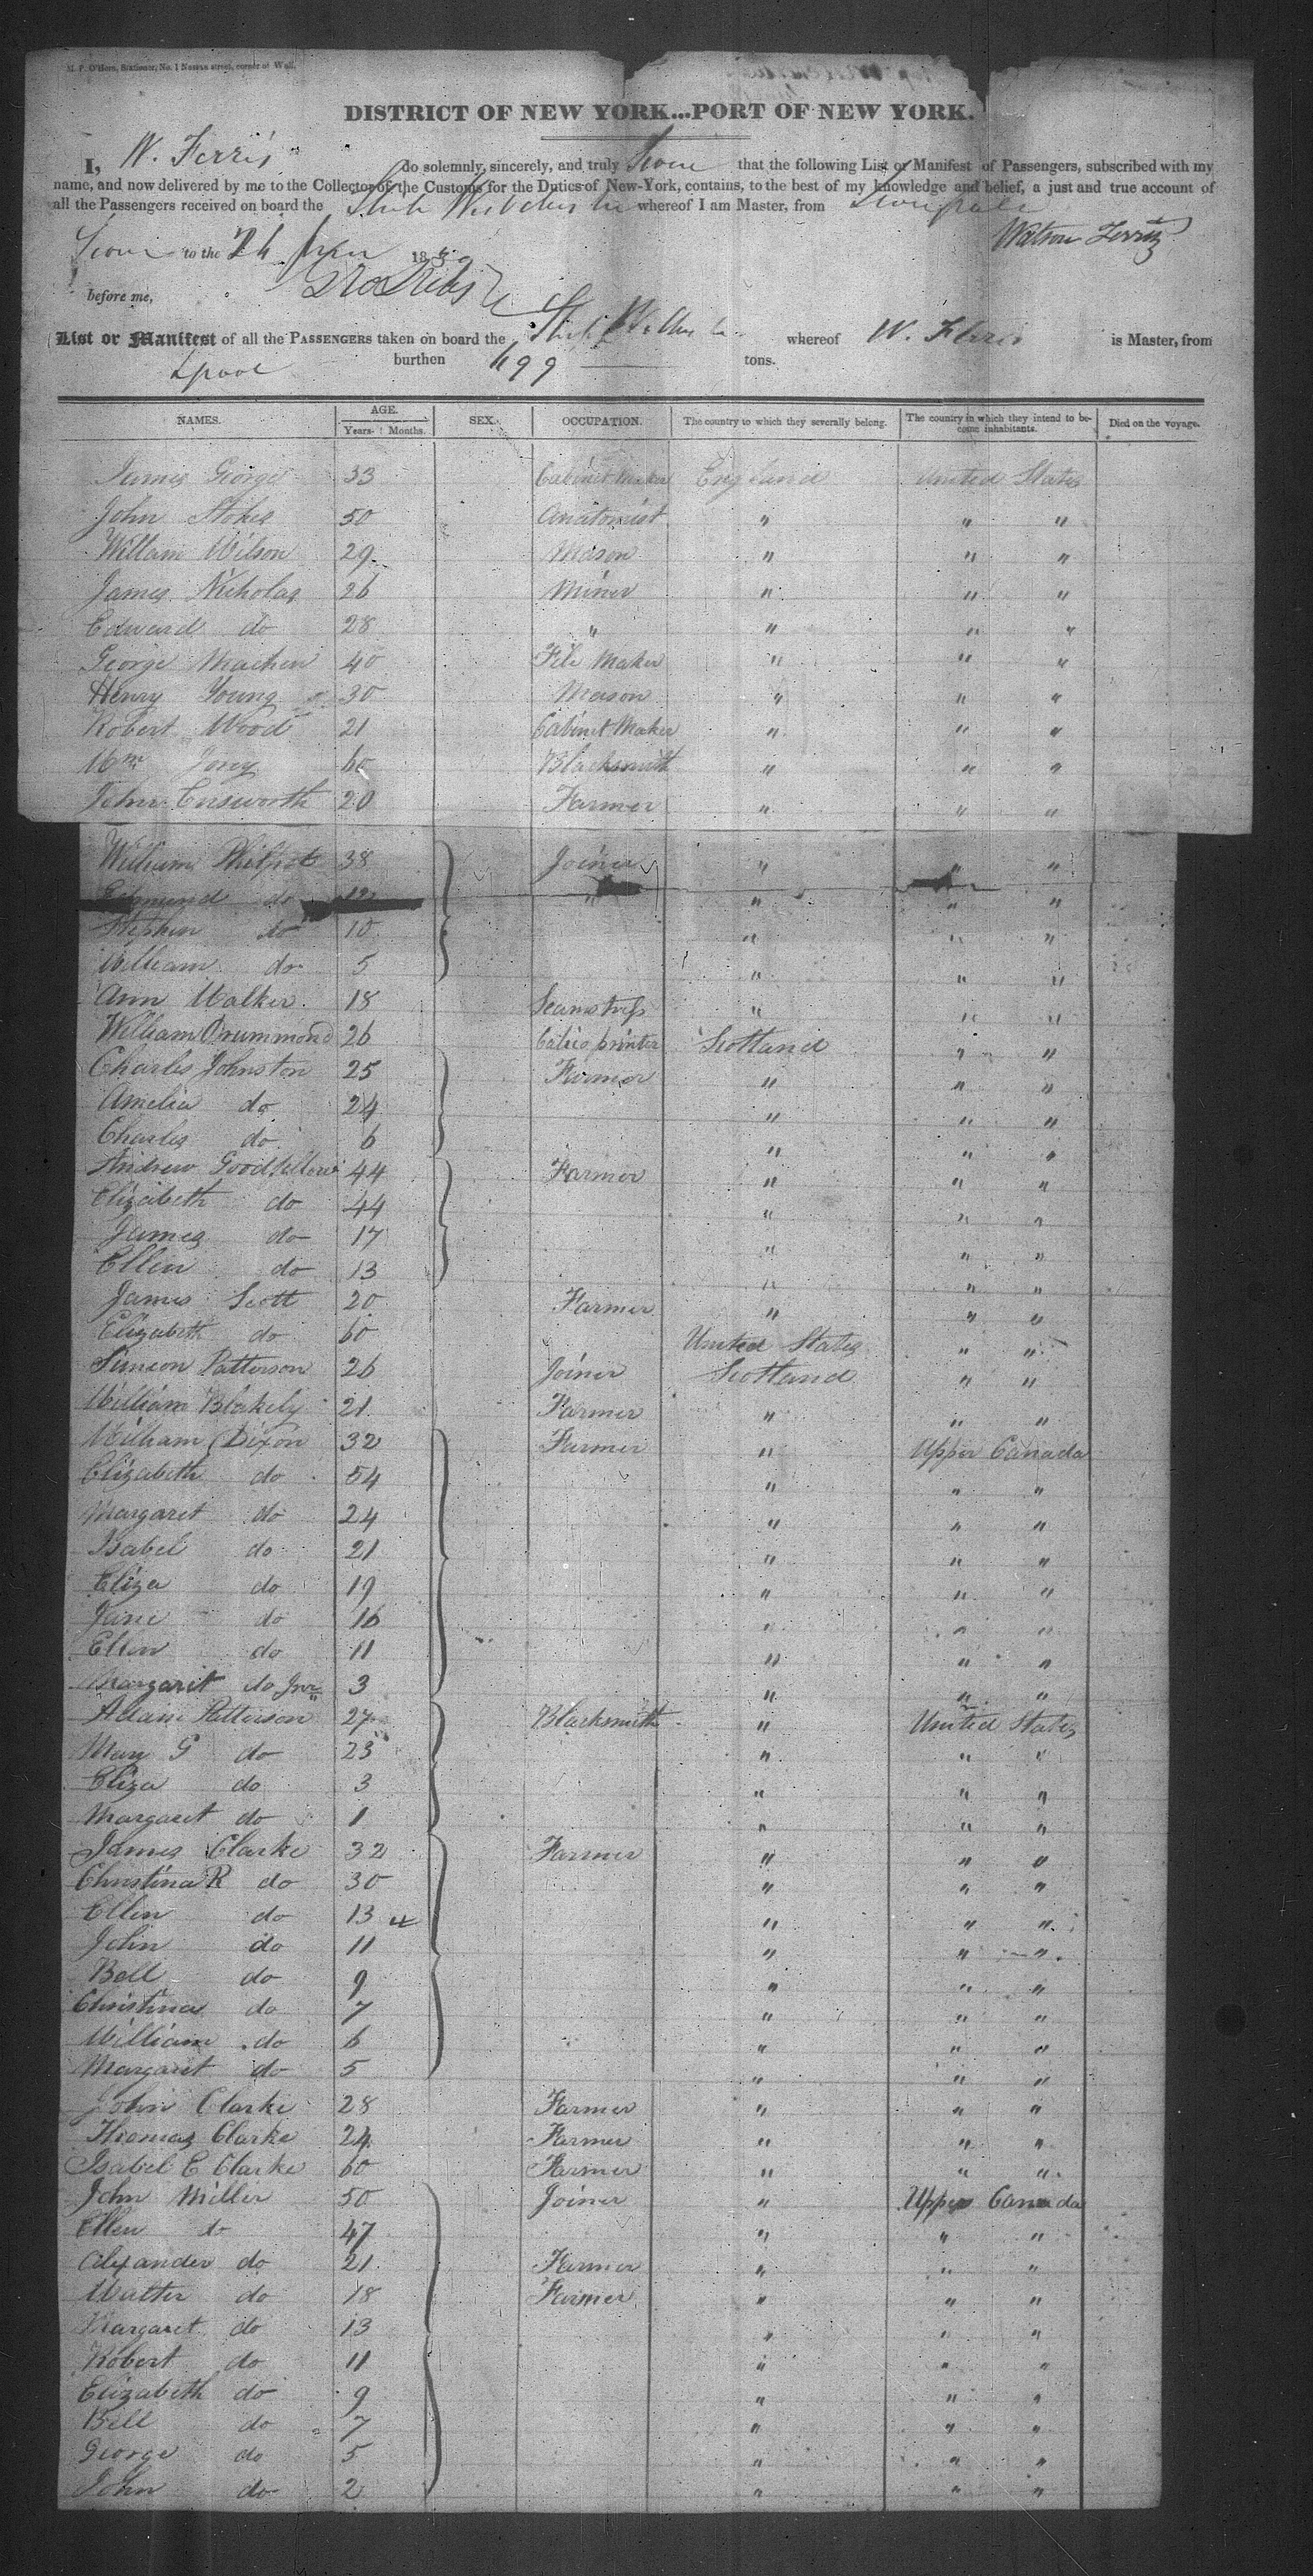 M. P. O'Hern, Stationer, No. 1 Nassau street, corner of Wall.
DISTRICT OF NEW YORK...PORT OF NEW YORK.
I, W. Ferris do solemnly, sincerely, and truly Swear that the following List or Manifest of Passengers, subscribed with my
name, and now delivered by me to the Collector of the Customs for the Dutics of New-York, contains, to the best of my knowledge and belief, a just and true account of
all the Passengers received on board the Ship Westchester whereof I am Master, from Liverpool
Watson Ferris
Sworn to the 24 18
before me,
List or Manifest of all the PASSENGERS taken on board the Ship Westchester whereof W. Ferris is Master, from
Lpool burthen 499 tons.
NAMES. AGE. Years. Months. SEX. OCCUPATION. The country to which they severally belong. The country in which they intend to become inhabitants. Died on the voyage.
James George 33 Cabinet Maker England United States
John Stokes 50 Anatomist " " "
William Wilson 29 Mason " " "
James Nicholas 26 Miner " " "
Edward do 28 " " " "
George Machen 40 File Maker " " "
Henry Young 30 Mason " " "
Robert Wood 21 Cabinet Maker " " "
Wm 60 Blacksmith " " "
John Ensworth 20 Farmer " " "
William Philpot 38 Joiner " " "
Edmund do 12 " " " "
Stephen do 10 " " "
William do 5 " " "
Ann Walker 18 Seamstress " " "
William Drummond 26 Calico printer Scotland " "
Charles Johnston 25 Farmer " " "
Amelia do 24 " " "
Charles do 6 " " "
Andrew Goodfellow 44 Farmer " " "
Elizabeth do 44 " " "
James do 17 " " "
Ellen do 13 " " "
James Scott 20 Farmer " " "
Elizabeth do 60 United States " "
Simeon Patterson 26 Joiner Scotland " "
William Blakely 21 Farmer " " "
William Dixon 32 Farmer " Upper Canada
Elizabeth do 54 " " "
Margaret do 24 " " "
Isabel do 21 " " "
Eliza do 19 " " "
Jane do 16 " " "
Ellen do 11 " " "
Margaret do Junr 3 " " "
Adam Patterson 27 Blacksmith " United States
Mary G do 23 " " "
Eliza do 3 " " "
Margaret do 1 " " "
James Clarke 32 Farmer " " "
Christina R do 30 " " "
Ellen do 13 " " "
John do 11 " " "
Bell do 9 " " "
Christina do 7 " " "
William do 6 " " "
Margaret do 5 " " "
John Clarke 28 Farmer " " "
Thomas Clarke 24 Farmer " " "
Isabel C Clarke 60 Farmer " " "
John Miller 50 Joiner " Upper Canada
Ellen do 47 " " "
Alexander do 21 Farmer " " "
Walter do 18 Farmer " " "
Margaret do 13 " " "
Robert do 11 " " "
Elizabeth do 9 " " "
Bell do 7 " " "
George do 5 " " "
John do 2 " " "